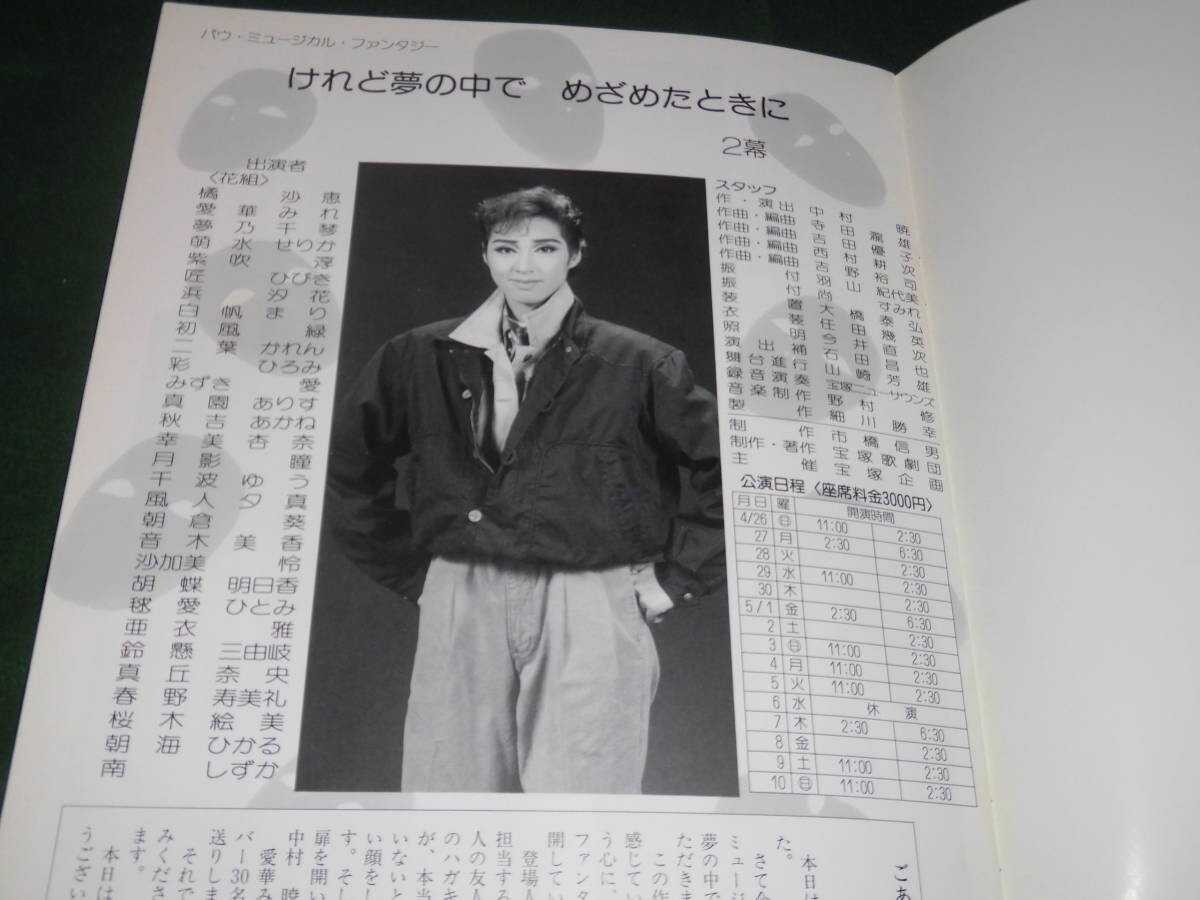 バウ・ミュージカル・ファンタジー
けれど夢の中で めざめたときに
2幕
出演者
〈花組〉
橘沙恵
愛華みれ
夢乃千琴
萌水せりか
紫吹淳
匠ひびき
浜汐花
白帆まり
初風緑
二葉かれん
彩ひろみ
みずき愛
真園ありす
秋吉あかね
幸美杏奈
月影瞳
千波ゆう
風人夕真
朝倉葵
音木美香
沙加美怜
胡蝶明日香
毬愛ひとみ
亜衣雅
鈴懸三由岐
真丘奈央
春野寿美礼
桜木絵美
朝海ひかる
南しずか
スタッフ
作・演出 中村暁
作曲・編曲 寺田瀧雄
作曲・編曲 吉田優子
作曲・編曲 西村耕次
作曲・編曲 吉野裕司
振付 羽山紀代美
振付 尚すみれ
装置 大橋泰弘
衣装 任田幾英
照明 今井直次
演出補 石田昌也
舞台進行 山崎芳雄
録音演奏 宝塚ニューサウンズ
音楽制作 野村修
製作 細川勝幸
制作 市橋信男
制作・著作 宝塚歌劇団
主催 宝塚企画
公演日程〈座席料金3000円〉
月日 曜 開演時間
4/26 日 11:00 2:30
27 月 2:30 6:30
28 火 2:30
29 水 11:00 2:30
30 木 2:30
5/1 金 2:30 6:30
2 土 2:30
3 日 11:00 2:30
4 月 11:00 2:30
5 火 11:00 2:30
6 水 休演
7 木 2:30 6:30
8 金 2:30
9 土 11:00 2:30
10 日 11:00 2:30
ごあ
本日は
た。
さて今
ミュージ
夢の中で
ただきま
この作
感じてい
う心に、
ファンタ
開してい
登場人
担当する
人の友人
のハガキ
が、本当
いないと
い顔をし
す。そし
扉を開い
中村 暁
愛華み
バー30名
送りしま
それで
みくださ
ます。
本日は
うござい